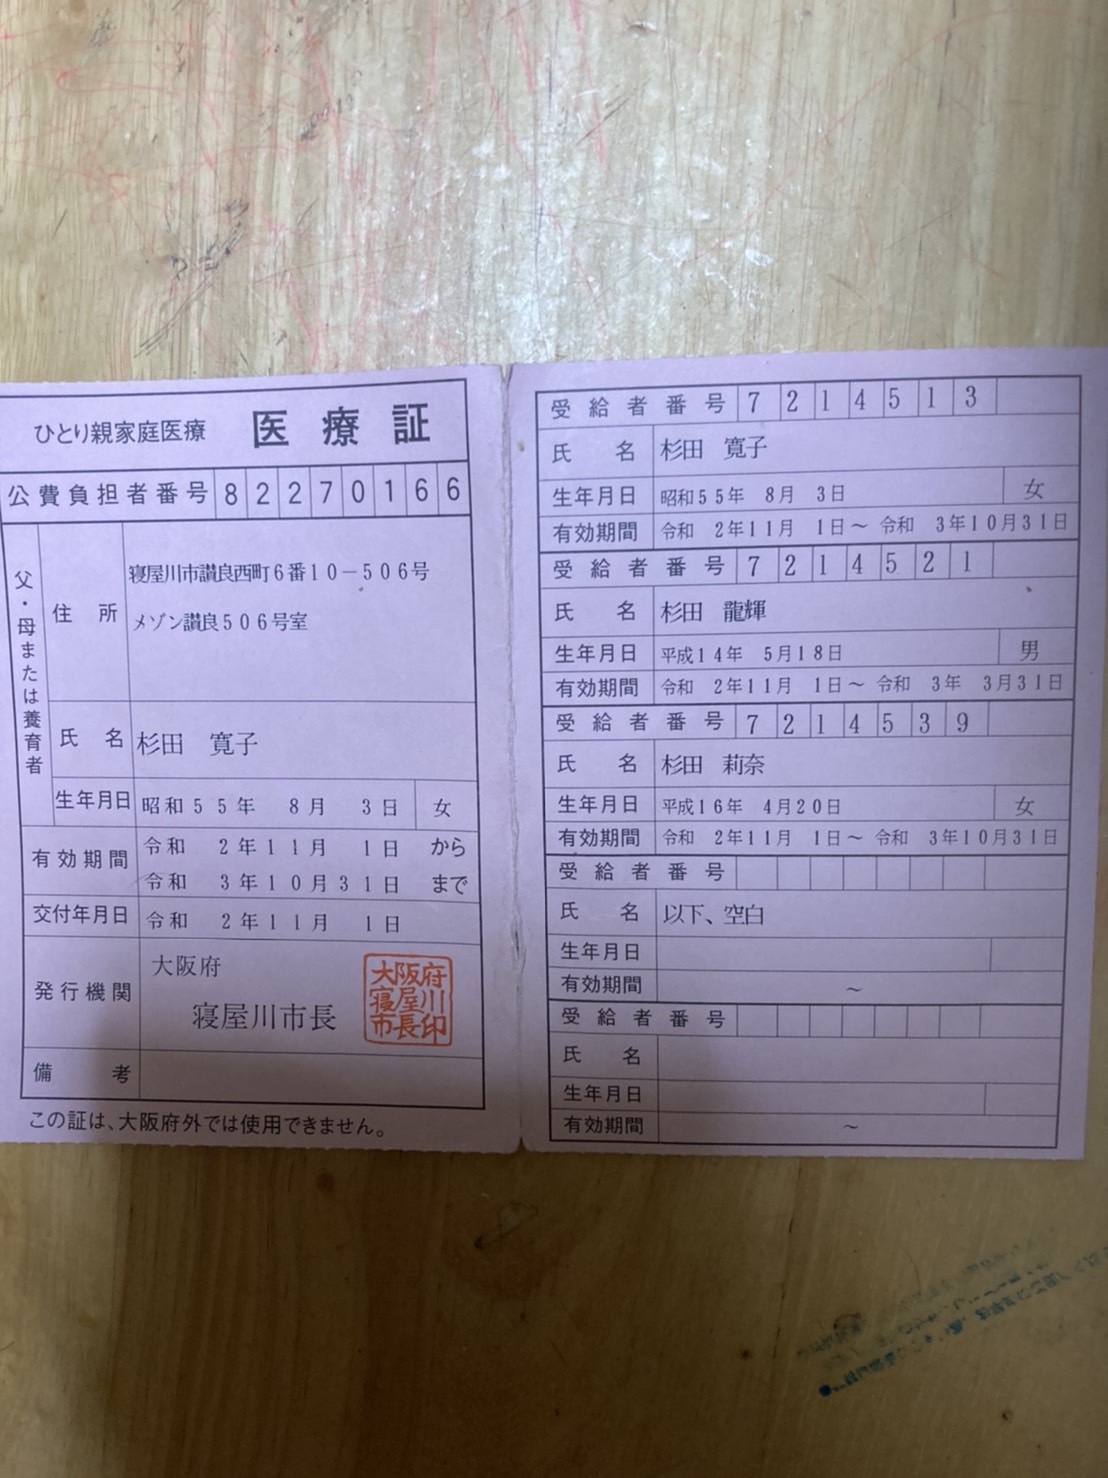 ひとり親家庭医療 医療証
公費負担者番号 82270166
父・母または養育者
住所 寝屋川市讃良西町6番10-506号
メゾン讃良506号室
氏名 杉田 寛子
生年月日 昭和55年 8月 3日 女
有効期間 令和 2年11月 1日 から
令和 3年10月31日 まで
交付年月日 令和 2年11月 1日
発行機関 大阪府
寝屋川市長
大阪府
寝屋川
市長印
備考
この証は、大阪府外では使用できません。
受給者番号 7214513
氏名 杉田 寛子
生年月日 昭和55年 8月 3日 女
有効期間 令和 2年11月 1日~ 令和 3年10月31日
受給者番号 7214521
氏名 杉田 龍輝
生年月日 平成14年 5月18日 男
有効期間 令和 2年11月 1日~ 令和 3年 3月31日
受給者番号 7214539
氏名 杉田 莉奈
生年月日 平成16年 4月20日 女
有効期間 令和 2年11月 1日~ 令和 3年10月31日
受給者番号
氏名 以下、空白
生年月日
有効期間 ~
受給者番号
氏名
生年月日
有効期間 ~